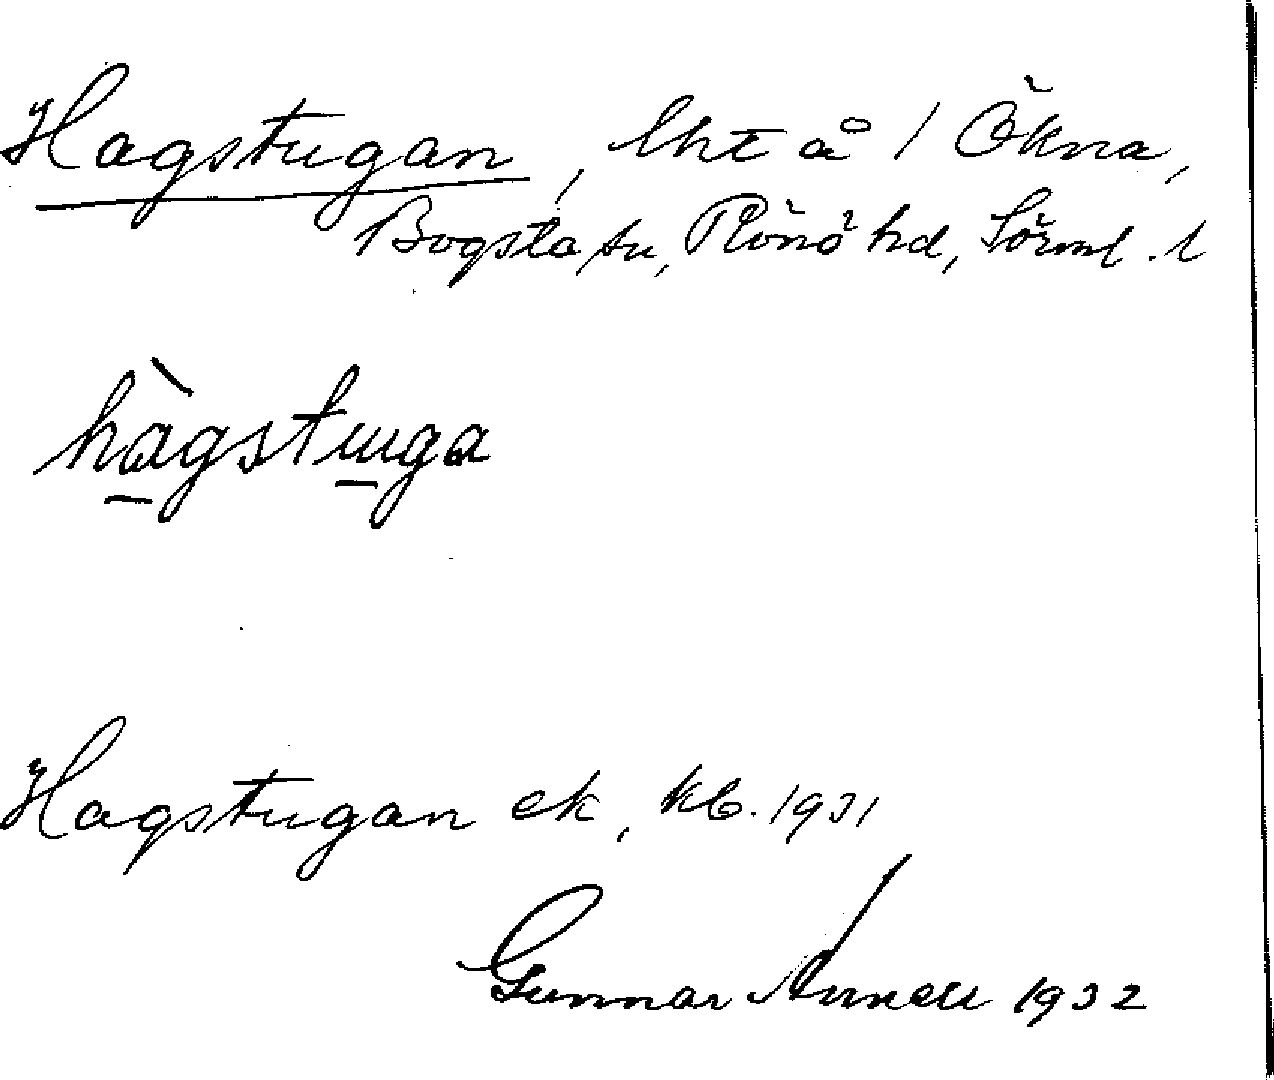 Hagstugan, lht å 1 Ökna,
Bogsta sn, Rönö hd, Sörml. l
hàgstuga
Hagstugan ek, kb. 1931
Gunnar 1932